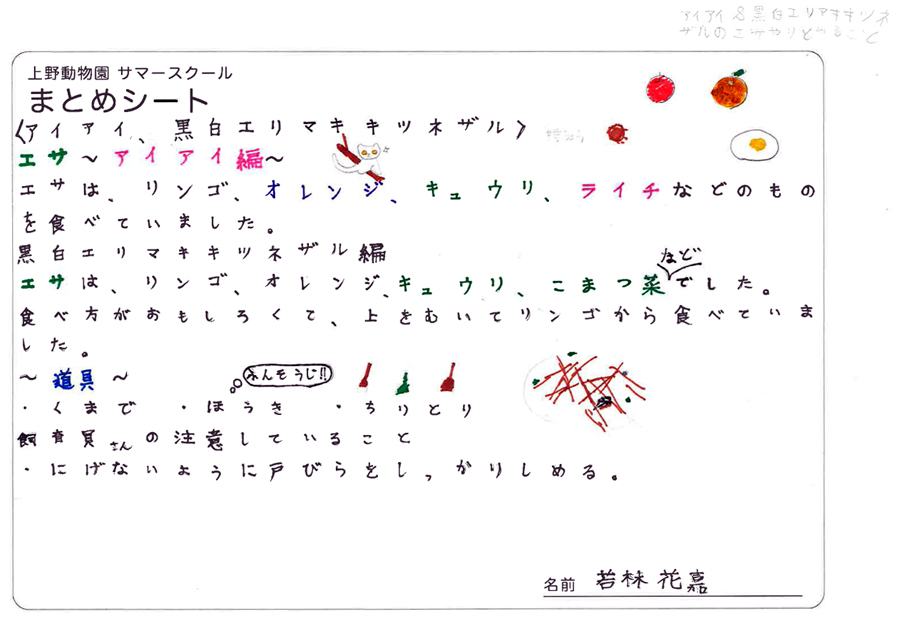 上野動物園 サマースクール
まとめシート
〈アイアイ、黒白エリマキキツネザル〉
エサ~アイアイ編~
エサは、リンゴ、オレンジ、キュウリ、ライチなどのもの
を食べていました。
黒白エリマキキツネザル編
エサは、リンゴ、オレンジ、キュウリ、こまつ菜などでした。
食べ方がおもしろくて、上をむいてリンゴから食べていま
した。
~道具~ ふんそうじ!!
・くまで ・ほうき ・ちりとり
飼育員さんの注意していること
・にげないように戸びらをしっかりしめる。
名前 若林 花嘉